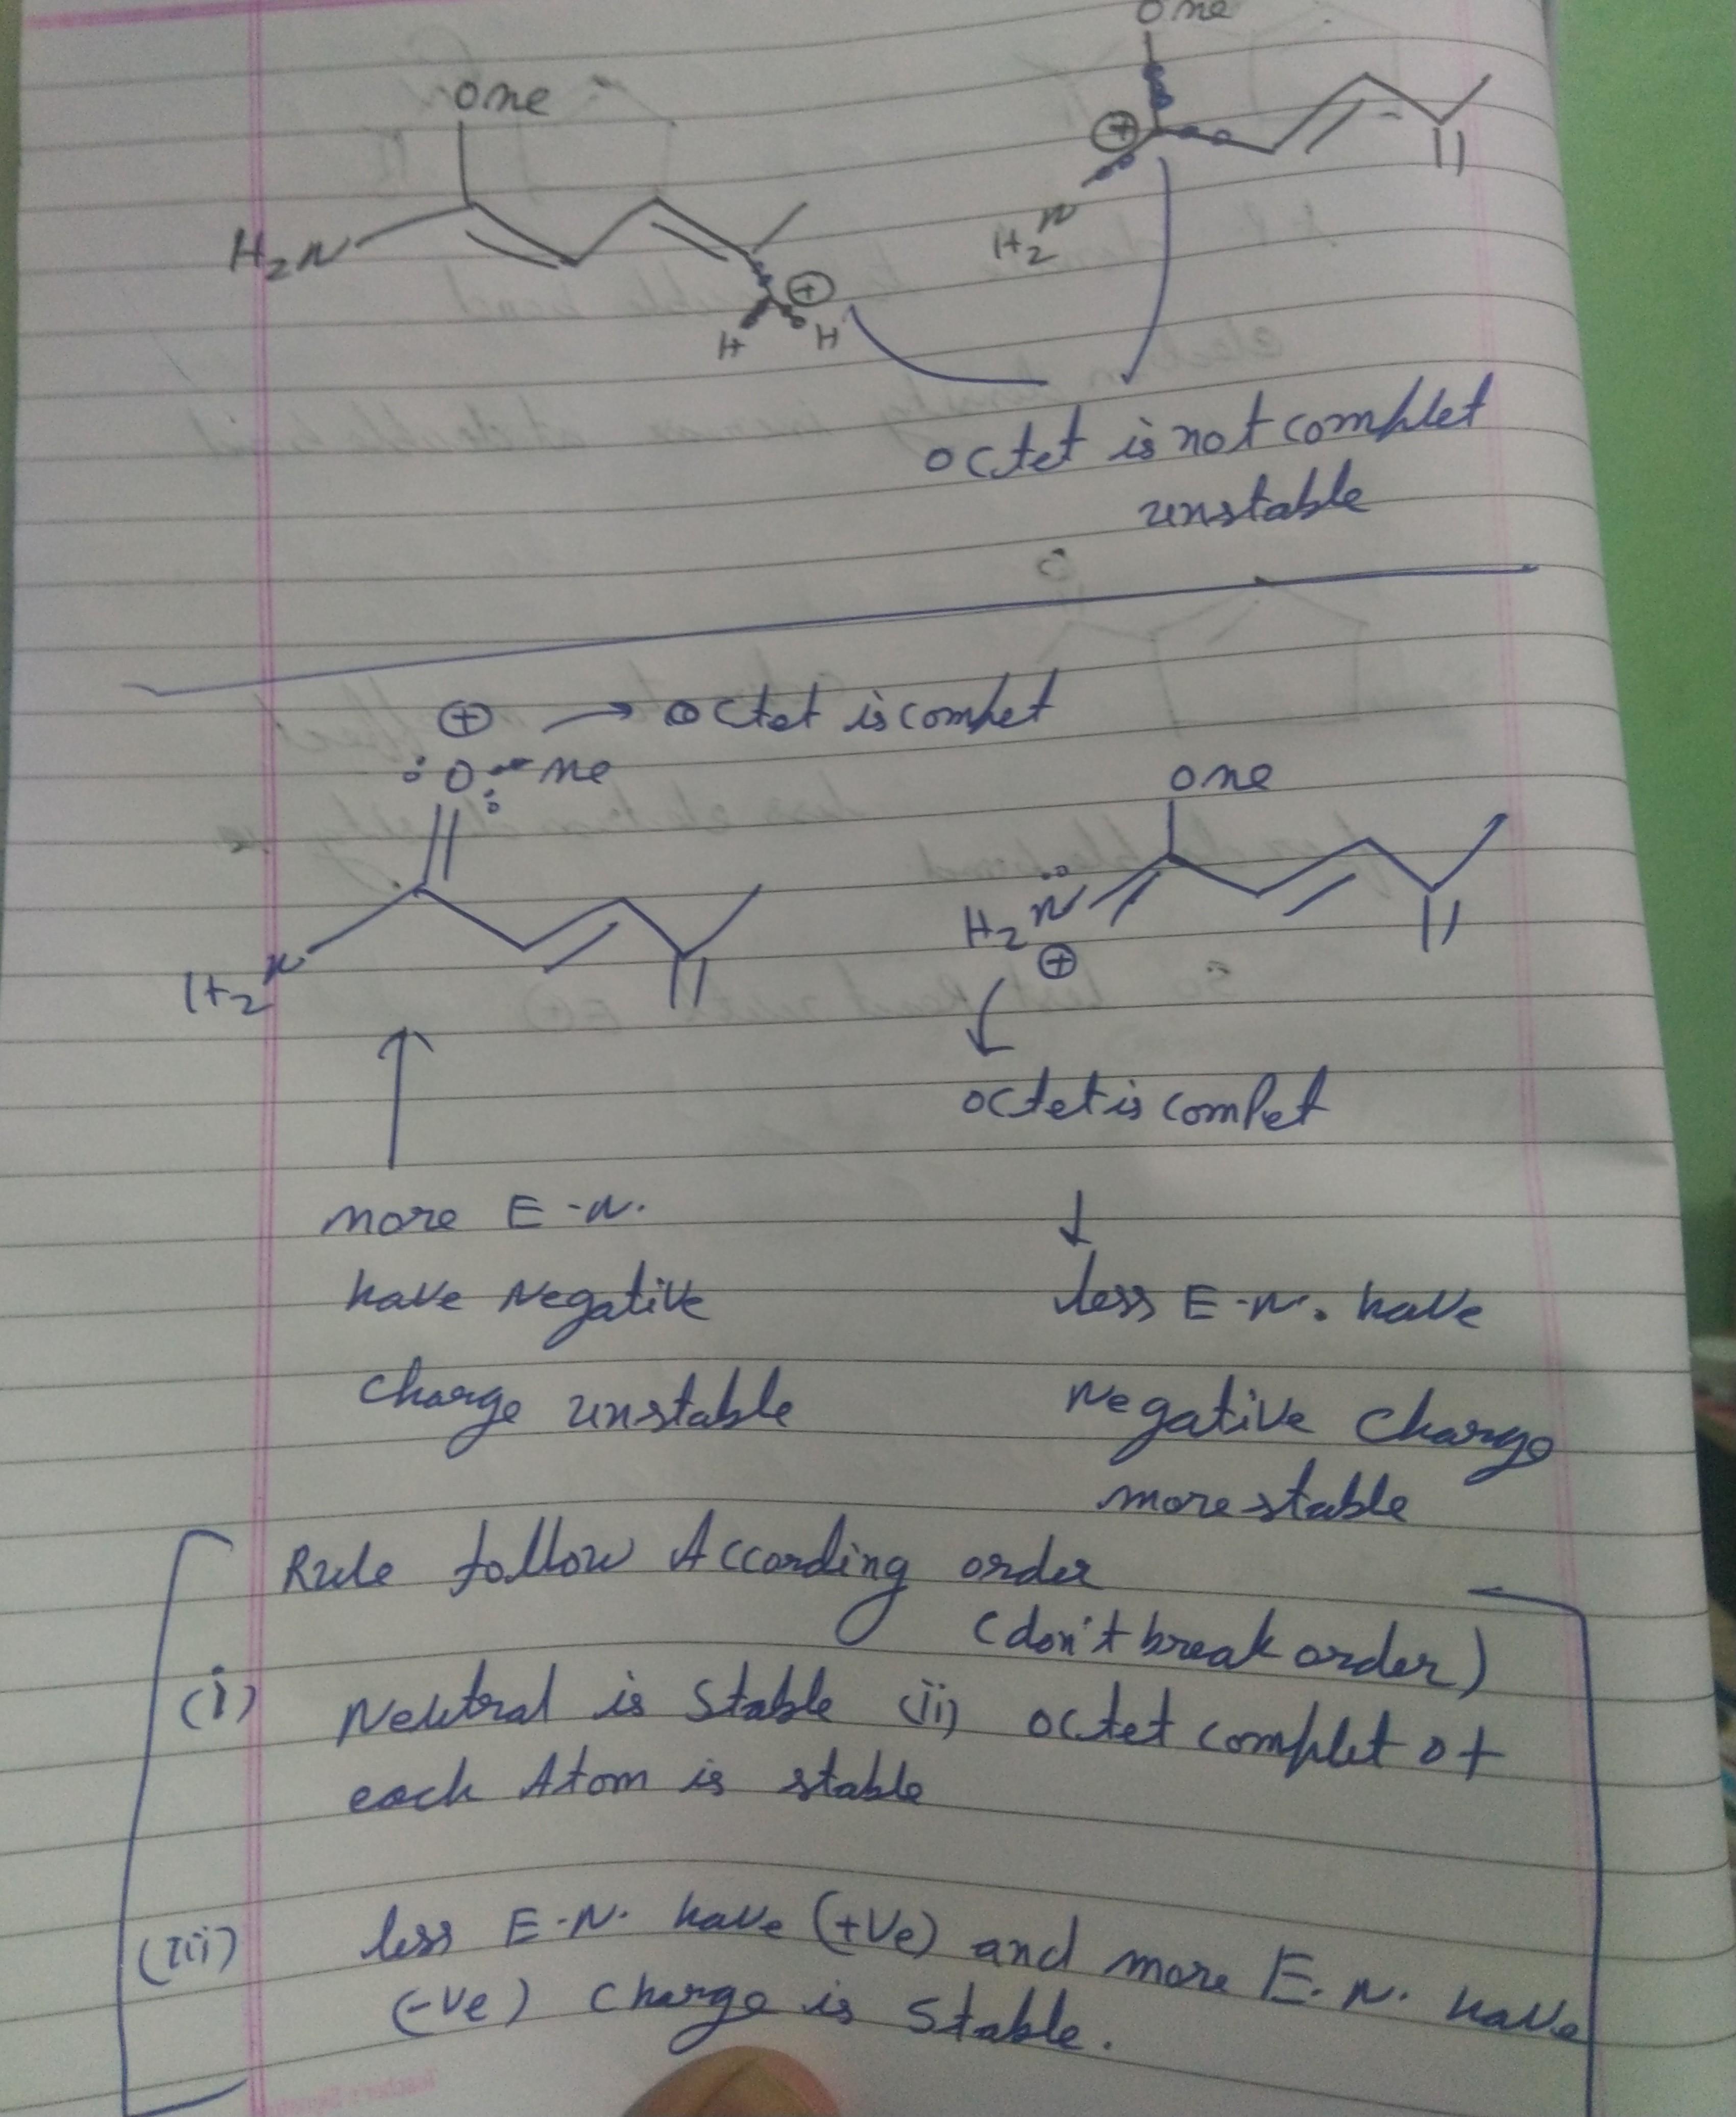 OMe
OMe
H₂N
⊕
⊕
H₂N
H H
octet is not complet
unstable
⊕ → octet is complet
:O-Me
OMe
H₂N
H₂N
⊕
octet is complet
more E-N.
have Negative
charge unstable
less E-N. have
Negative charge
more stable
Rule follow According order
(don't break order)
(i) Neutral is stable (ii) octet complet of
each Atom is stable
(iii) less E-N. have (+ve) and more E.N. have
(-ve) charge is stable.